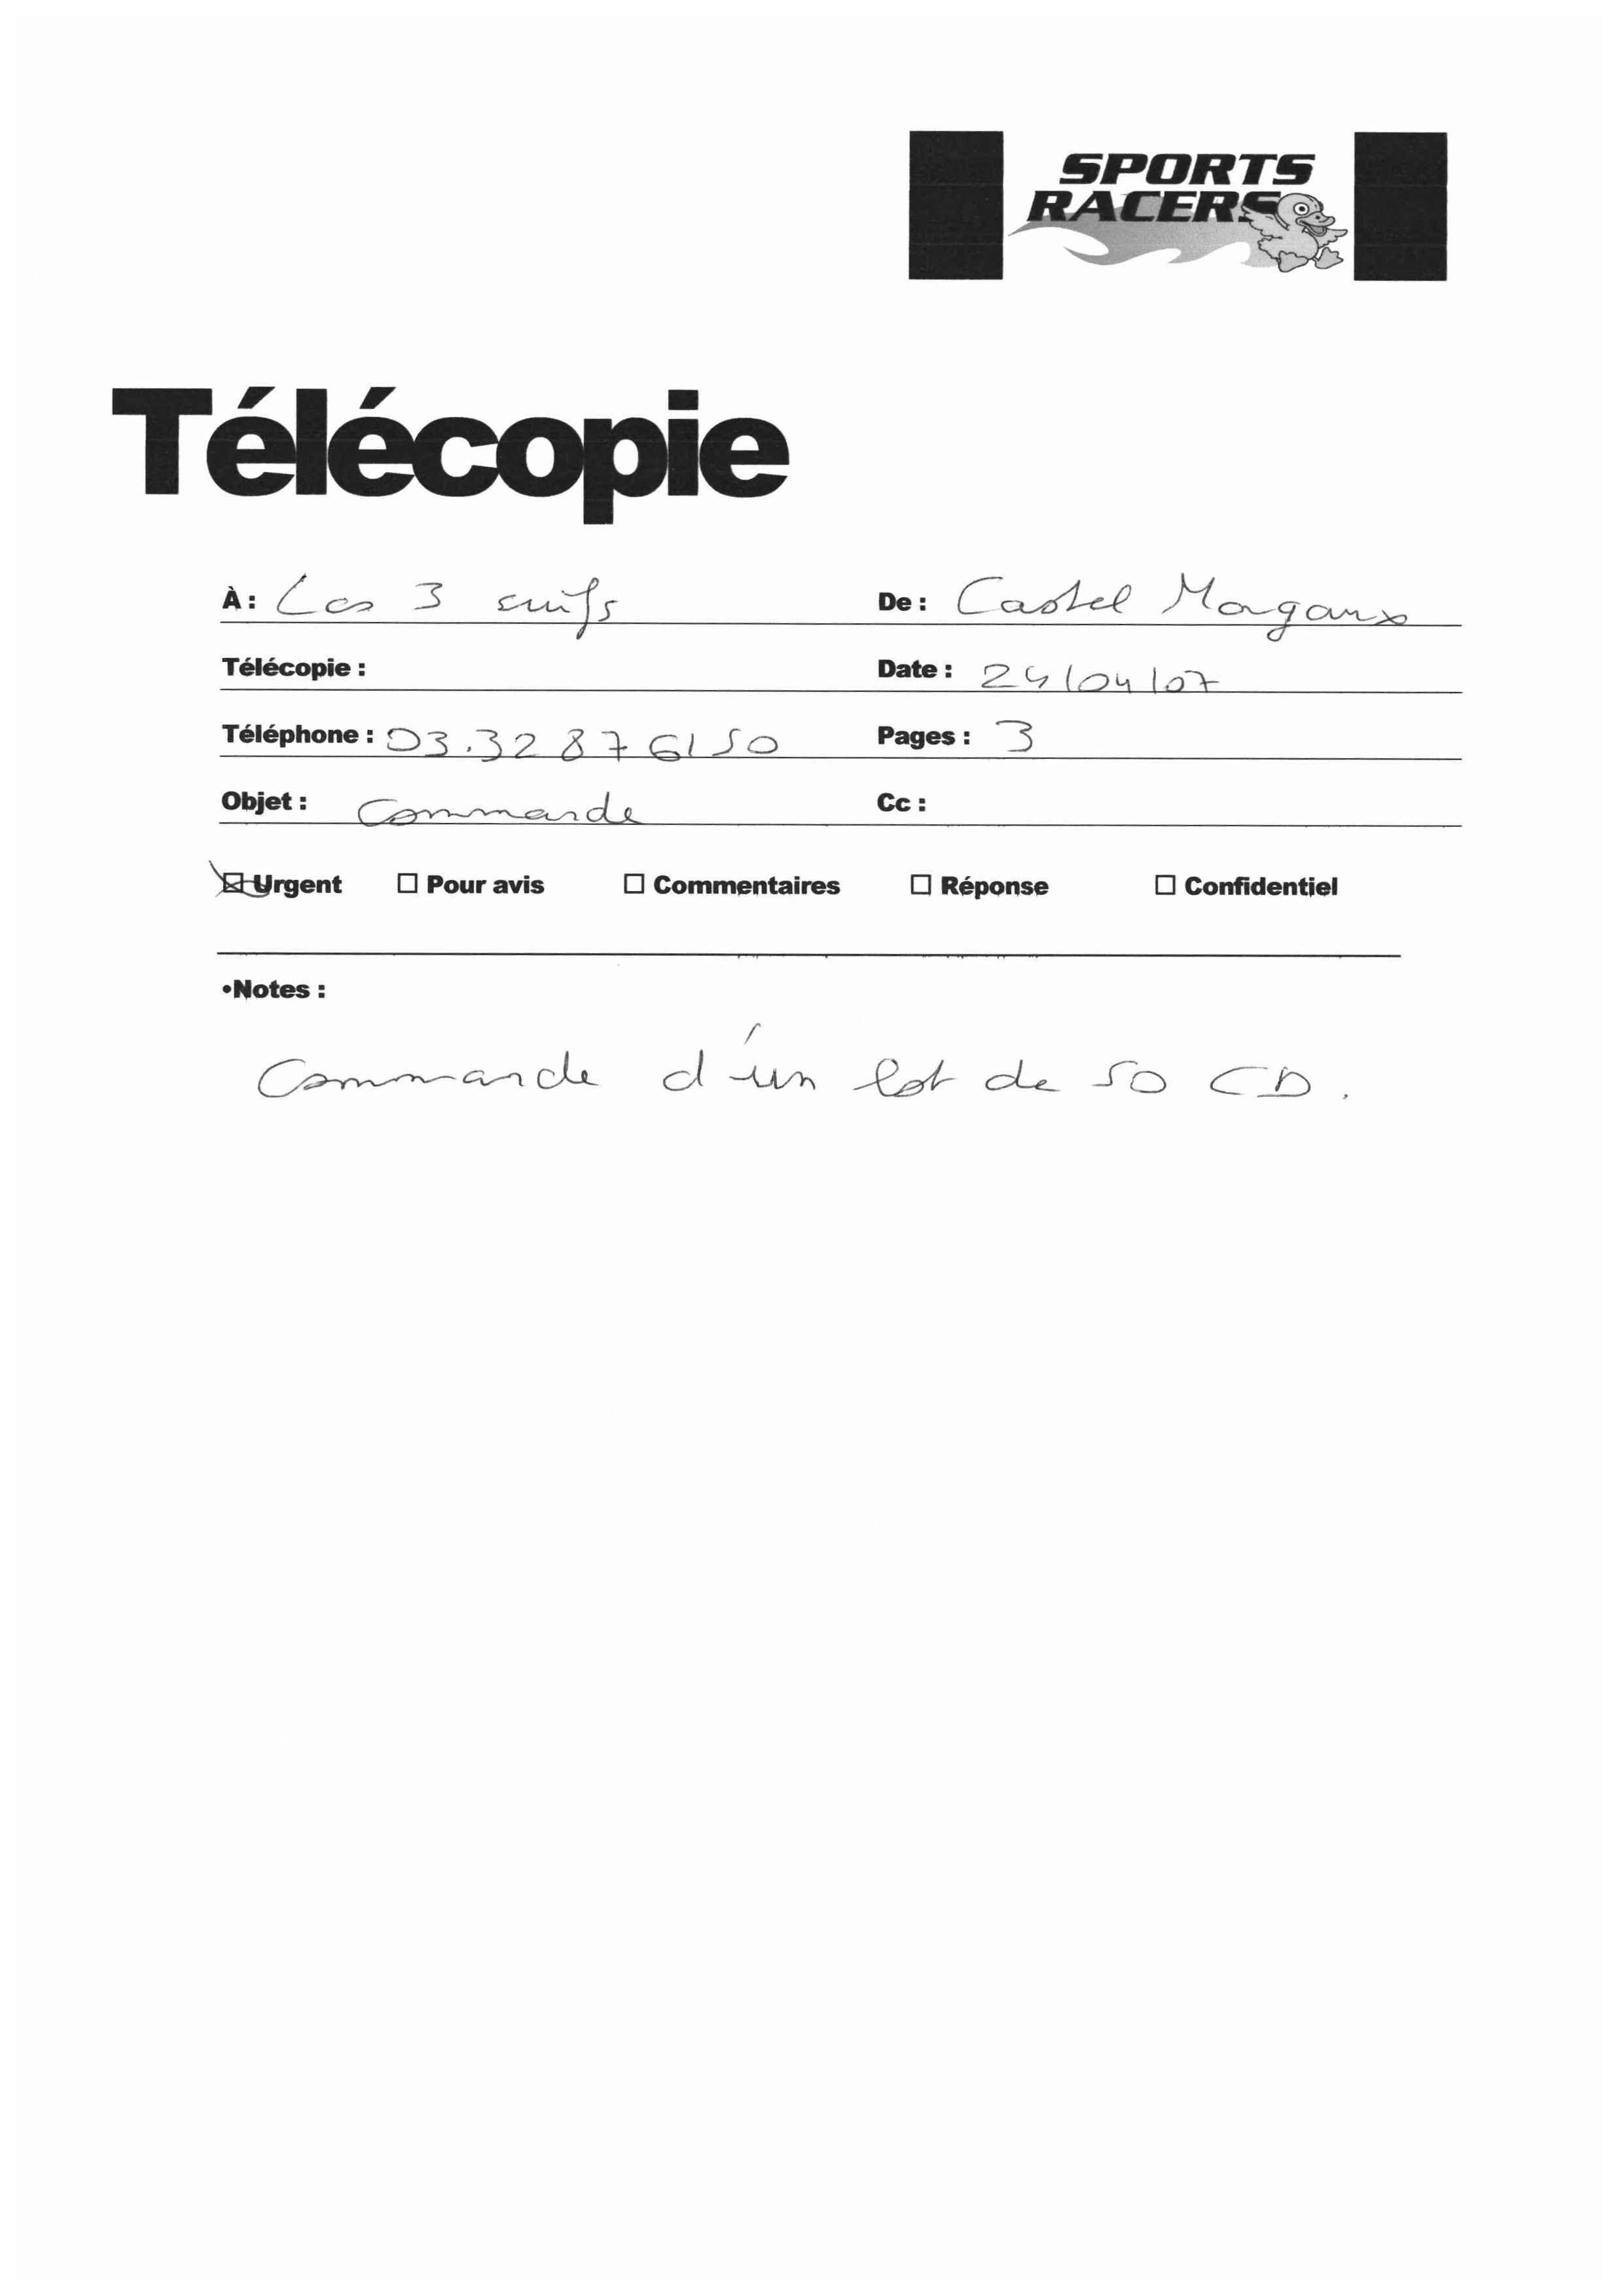 SPORTS
RACERS
Télécopie
À : Les 3 suifs De : Castel Morgane
Télécopie : Date : 24/04/07
Téléphone : 03.32 87 61 50 Pages : 3
Objet : Commande Cc :
☒ Urgent ☐ Pour avis ☐ Commentaires ☐ Réponse ☐ Confidentiel
•Notes :
Commande d'un lot de 50 CD.